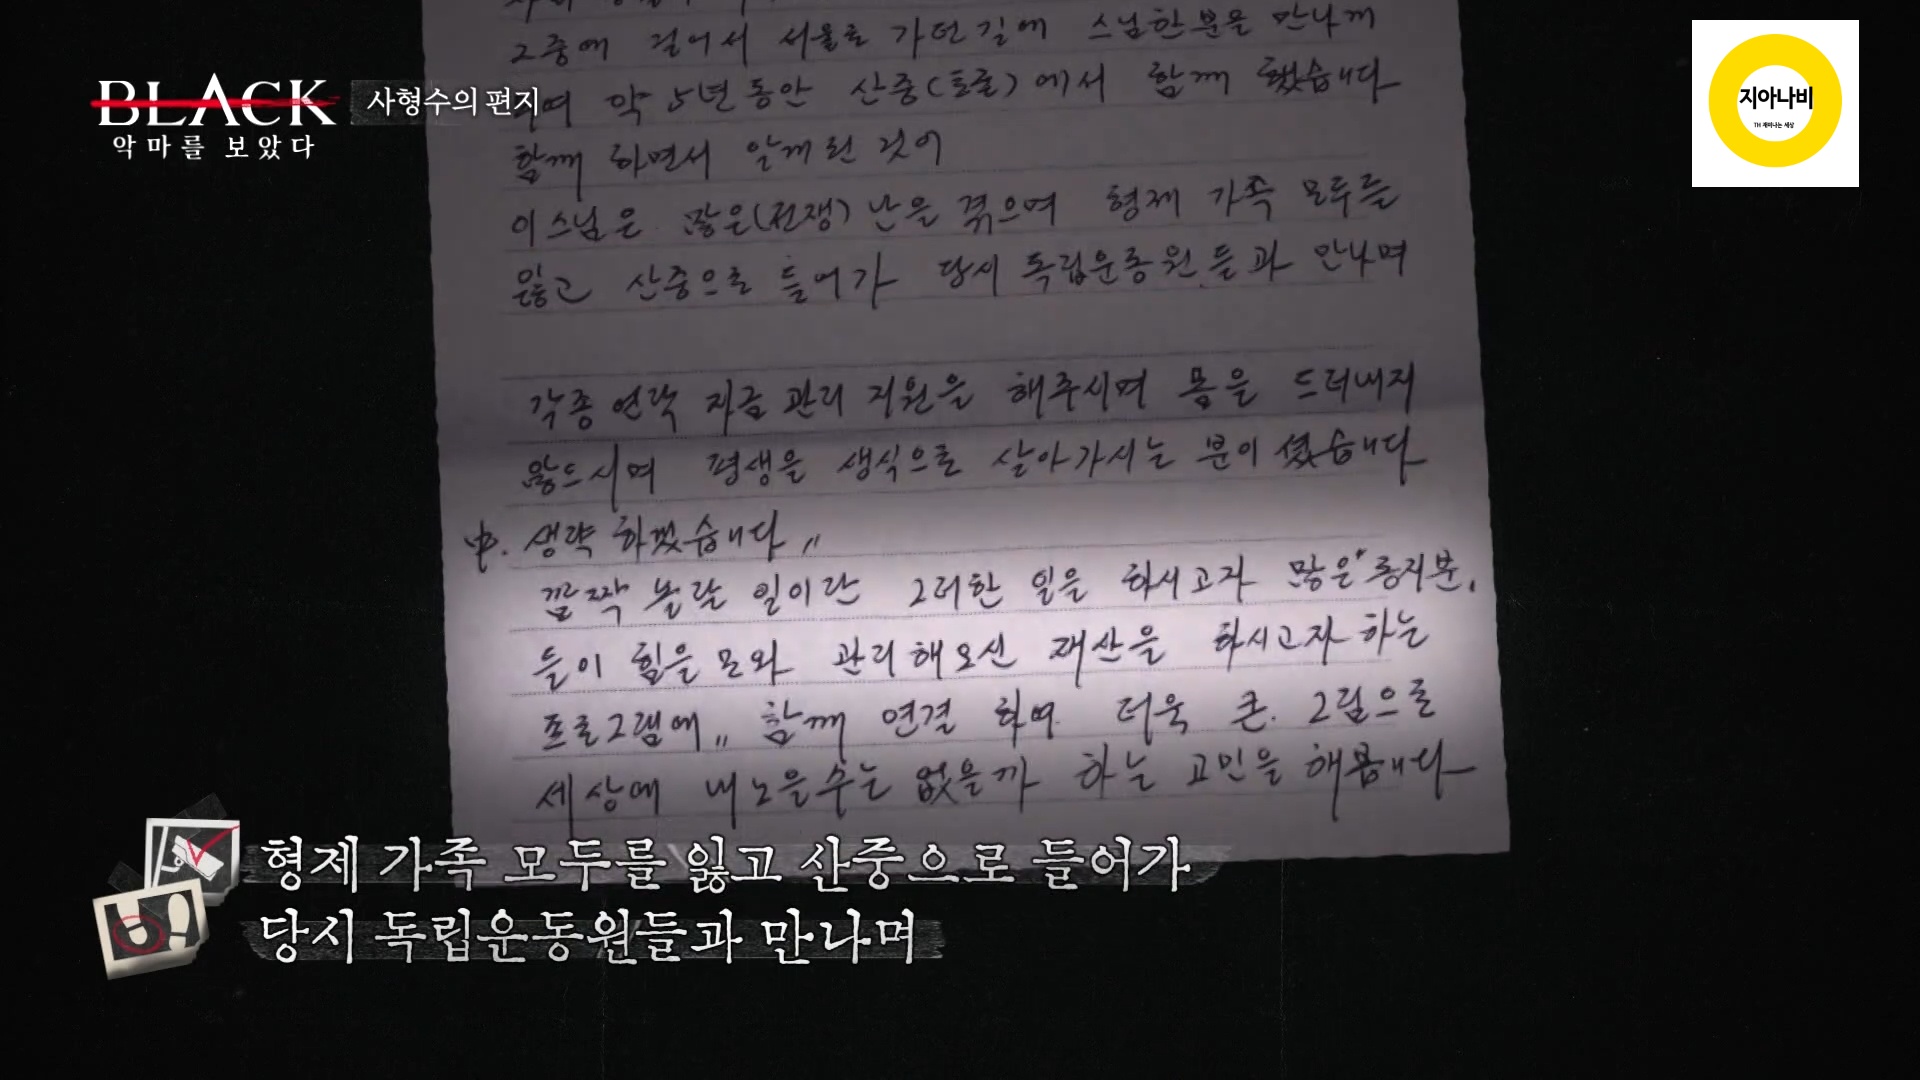 2중에 걸어서 서울로 가던길에 스님한분을 만나게
되여 약 5년동안 산중(토굴)에서 함께 했습니다
함께 하면서 알게된 것이
이스님은 많은(전쟁) 난을 겪으며 형제 가족 모두를
잃고 산중으로 들어가 당시 독립운동원들과 만나며
각종 연락 자금관리 지원을 해주시며 몸을 드러내지
않으시며 평생을 생식으로 살아가시는 분이셨습니다
中. 생략 하겠습니다〃
깜짝 놀랄 일이란 그러한 일을 하시고자 많은 동지분,
들이 힘을 모와 관리해오신 재산을 하시고자 하는
프로그램에〃 함께 연결 하여 더욱 큰 그림으로
세상에 내노을수는 없을까 하는 고민을 해봅니다
BLACK
악마를 보았다
사형수의 편지
지아나비
TM 재미나는 세상
형제 가족 모두를 잃고 산중으로 들어가
당시 독립운동원들과 만나며